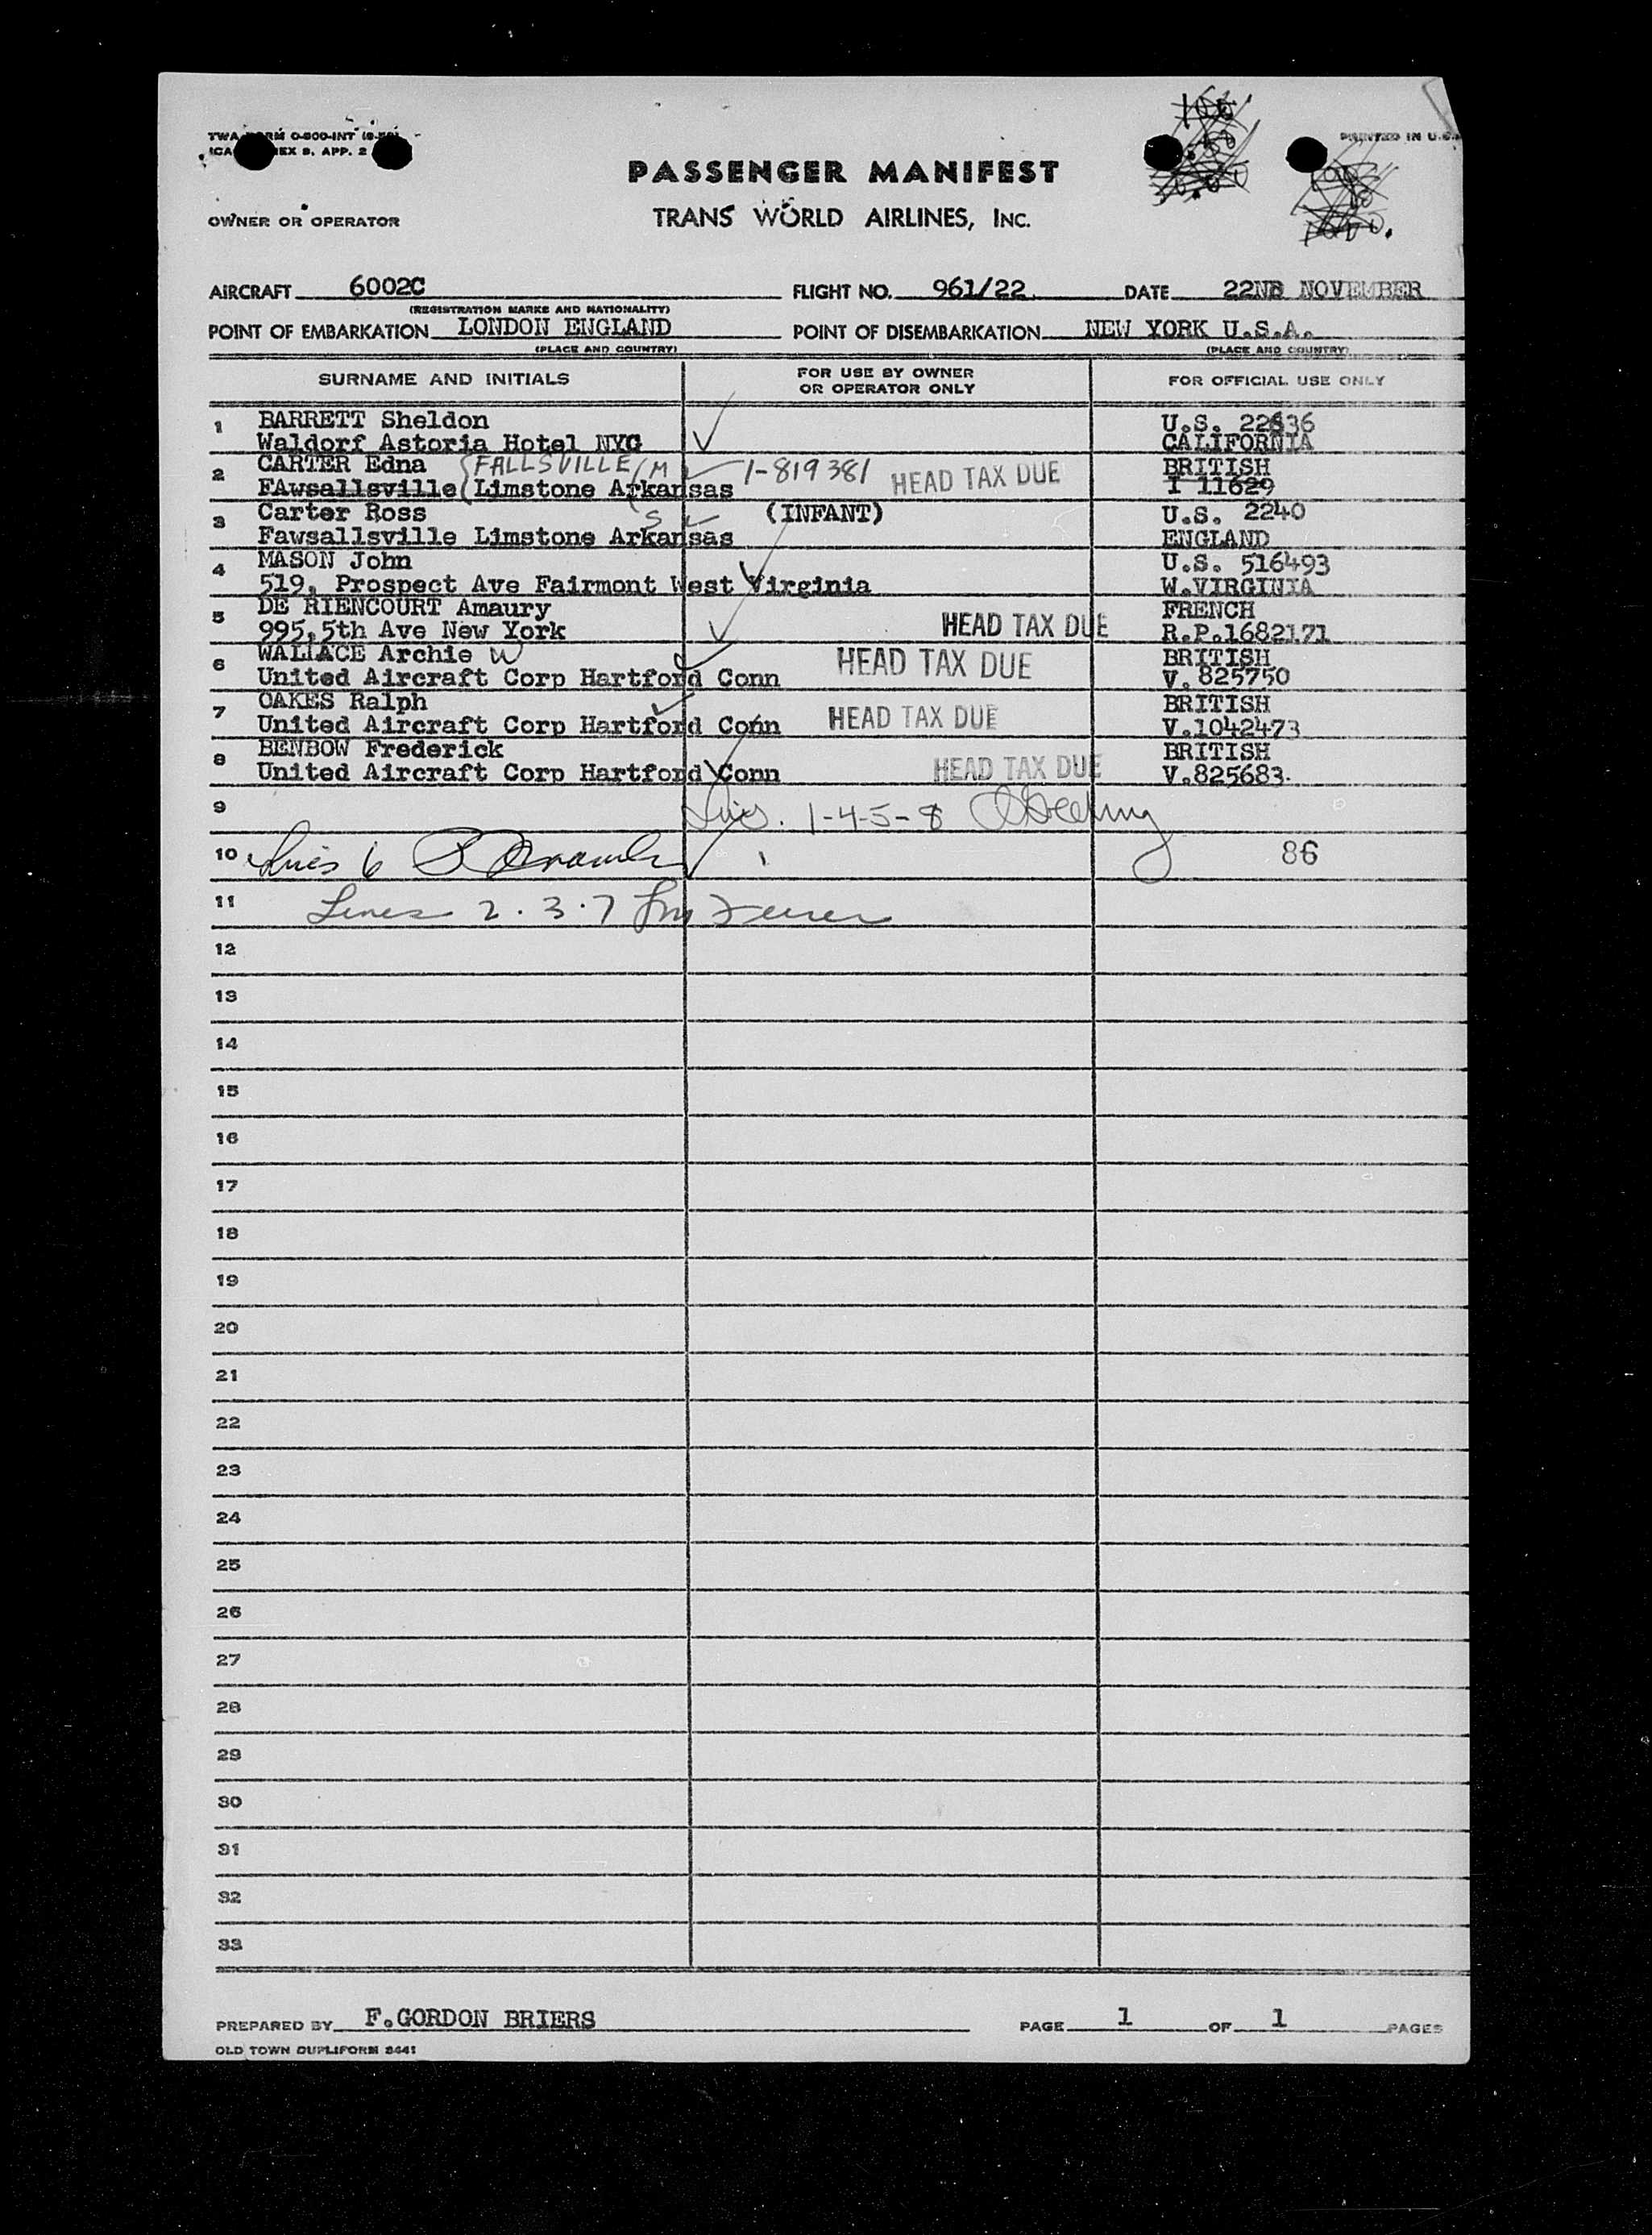 TWA FORM O-800-INT
PRINTED IN U.S.
ICA EX 9. APP. 2
PASSENGER MANIFEST
OWNER OR OPERATOR
TRANS WORLD AIRLINES, INC.
AIRCRAFT 6002C FLIGHT NO. 961/22. DATE 22ND NOVEMBER
(REGISTRATION MARKS AND NATIONALITY)
POINT OF EMBARKATION LONDON ENGLAND POINT OF DISEMBARKATION NEW YORK U.S.A.
(PLACE AND COUNTRY) (PLACE AND COUNTRY)
SURNAME AND INITIALS FOR USE BY OWNER OR OPERATOR ONLY FOR OFFICIAL USE ONLY
1 BARRETT Sheldon U.S. 22636
Waldorf Astoria Hotel NYC CALIFORNIA
2 CARTER Edna FALLSVILLE M 1-819381 HEAD TAX DUE BRITISH
FAwsallsville Limstone Arkansas I 11629
3 Carter Ross S (INFANT) U.S. 2240
Fawsallsville Limstone Arkansas ENGLAND
4 MASON John U.S. 516493
519, Prospect Ave Fairmont West Virginia W.VIRGINIA
5 DE RIENCOURT Amaury HEAD TAX DUE FRENCH
995,5th Ave New York R.P.1682171
6 WALLACE Archie W HEAD TAX DUE BRITISH
United Aircraft Corp Hartford Conn V.825750
7 OAKES Ralph HEAD TAX DUE BRITISH
United Aircraft Corp Hartford Conn V.1042473
8 BENBOW Frederick HEAD TAX DUE BRITISH
United Aircraft Corp Hartford Conn V.825683.
9 1-4-5-8
10 6 86
11 Lines 2.3.7
12
13
14
15
16
17
18
19
20
21
22
23
24
25
26
27
28
29
30
31
32
33
PREPARED BY F.GORDON BRIERS PAGE 1 OF 1 PAGES
OLD TOWN DUPLIFORM 8441